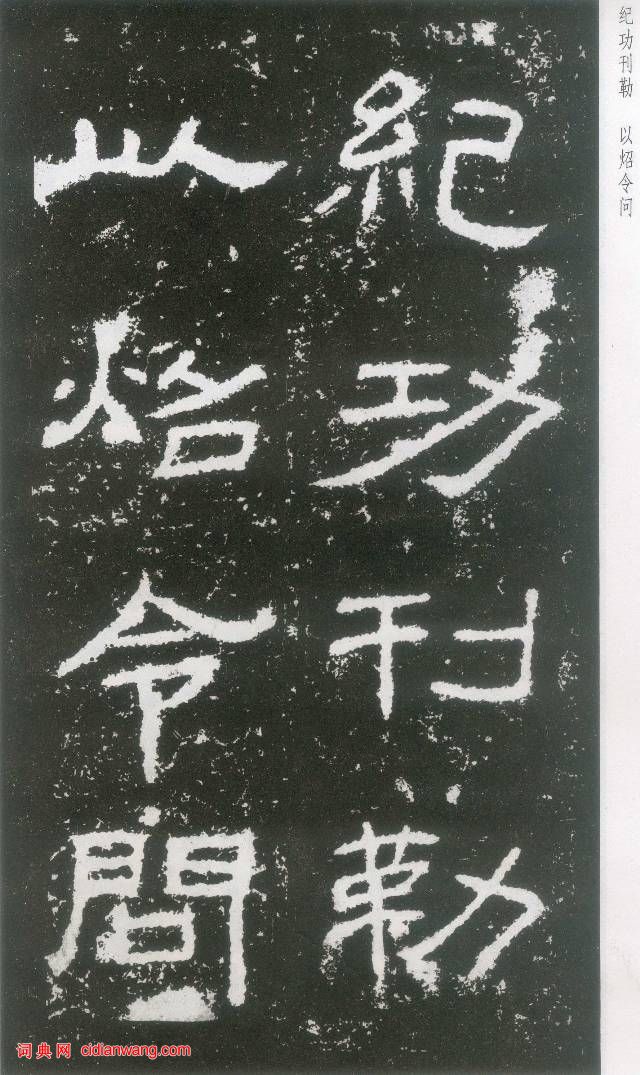 紀功刊勒
以炤令問
纪功刊勒 以炤令问
词典网 cidianwang.com